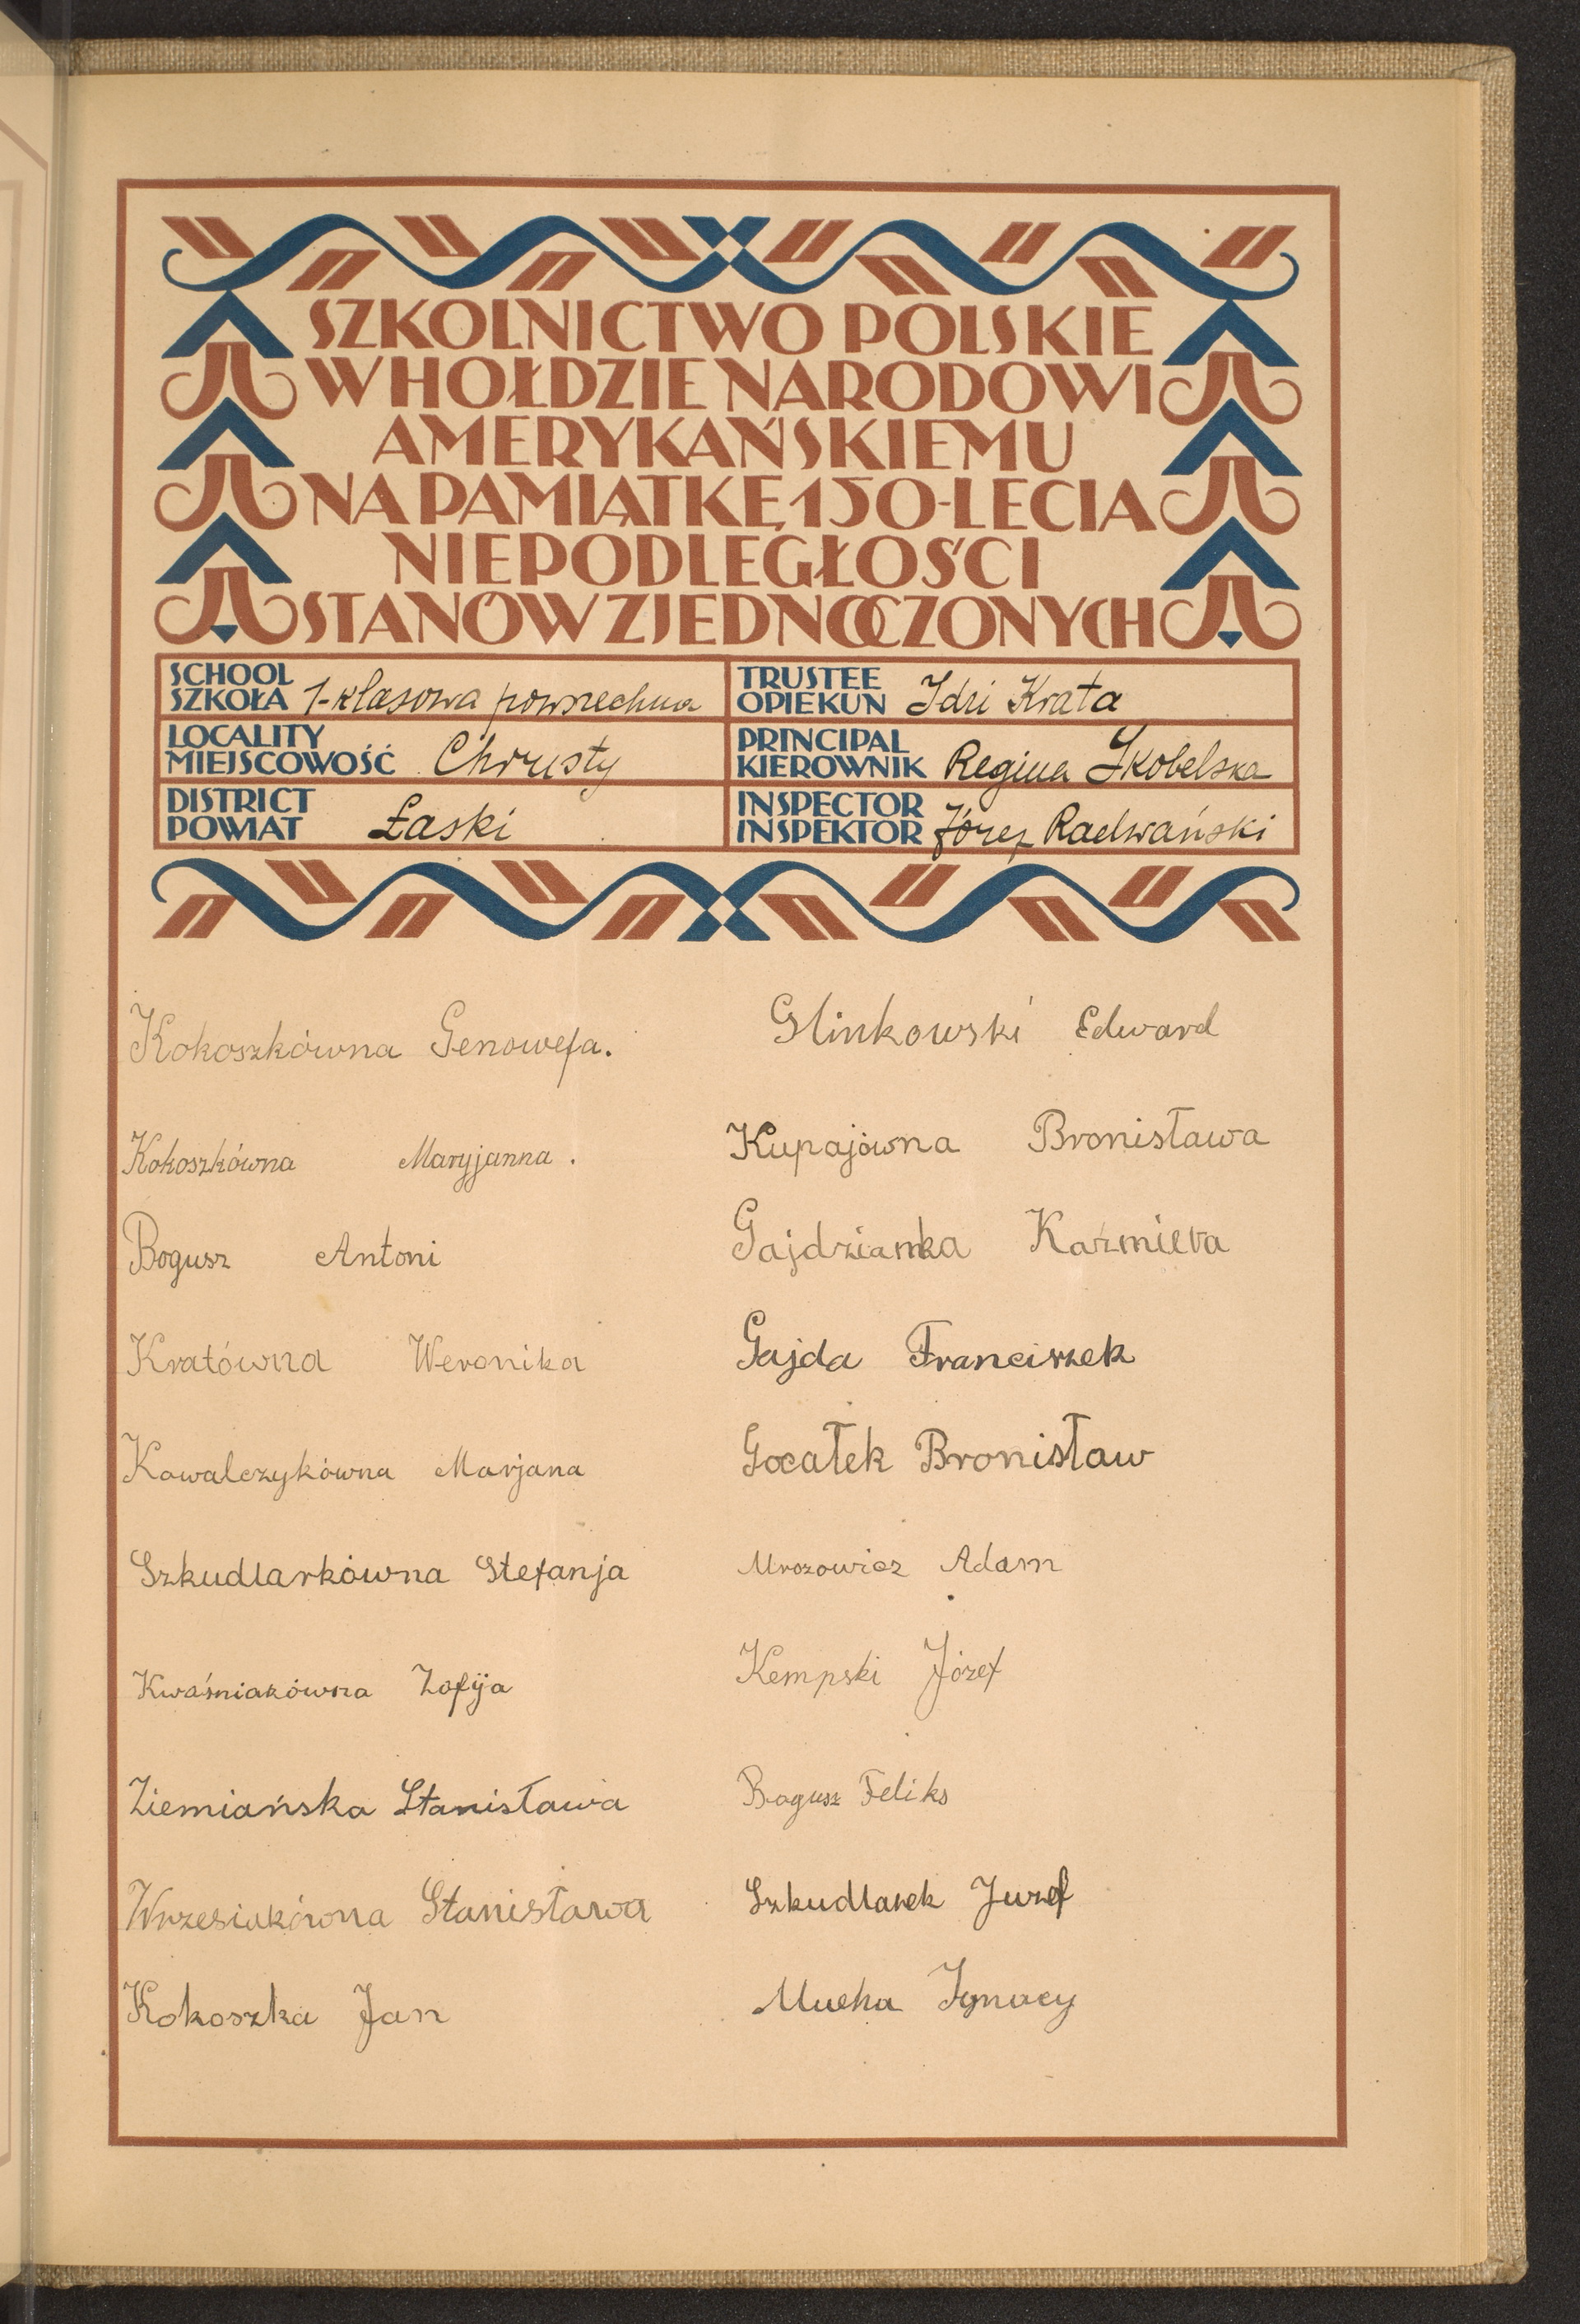 SZKOLNICTWO POLSKIE
W HOŁDZIE NARODOWI
AMERYKAŃSKIEMU
NA PAMIĄTKĘ 150-LECIA
NIEPODLEGŁOŚCI
STANÓW ZJEDNOCZONYCH
SCHOOL
SZKOŁA 1-klasowa powszechna
TRUSTEE
OPIEKUN Idzi Krata
LOCALITY
MIEJSCOWOŚĆ Chrusty
PRINCIPAL
KIEROWNIK Regina Skobelska
DISTRICT
POWIAT Łaski
INSPECTOR
INSPEKTOR Józef Radwański
Kokoszkówna Genowefa.
Kokoszkówna Maryjanna.
Bogusz Antoni
Kratówna Weronika
Kowalczykówna Marjana
Szkudlarkówna Stefanja
Kwaśniakówna Zofija
Ziemiańska Stanisława
Wrzesiakówna Stanisława
Kokoszka Jan
Glinkowski Edward
Kupajówna Bronisława
Gajdzianka Kaźmiera
Gajda Franciszek
Gocałek Bronisław
Mrozowicz Adam
Kempski Józef
Bogusz Feliks
Szkudlarek Juzef
Mucha Ignacy